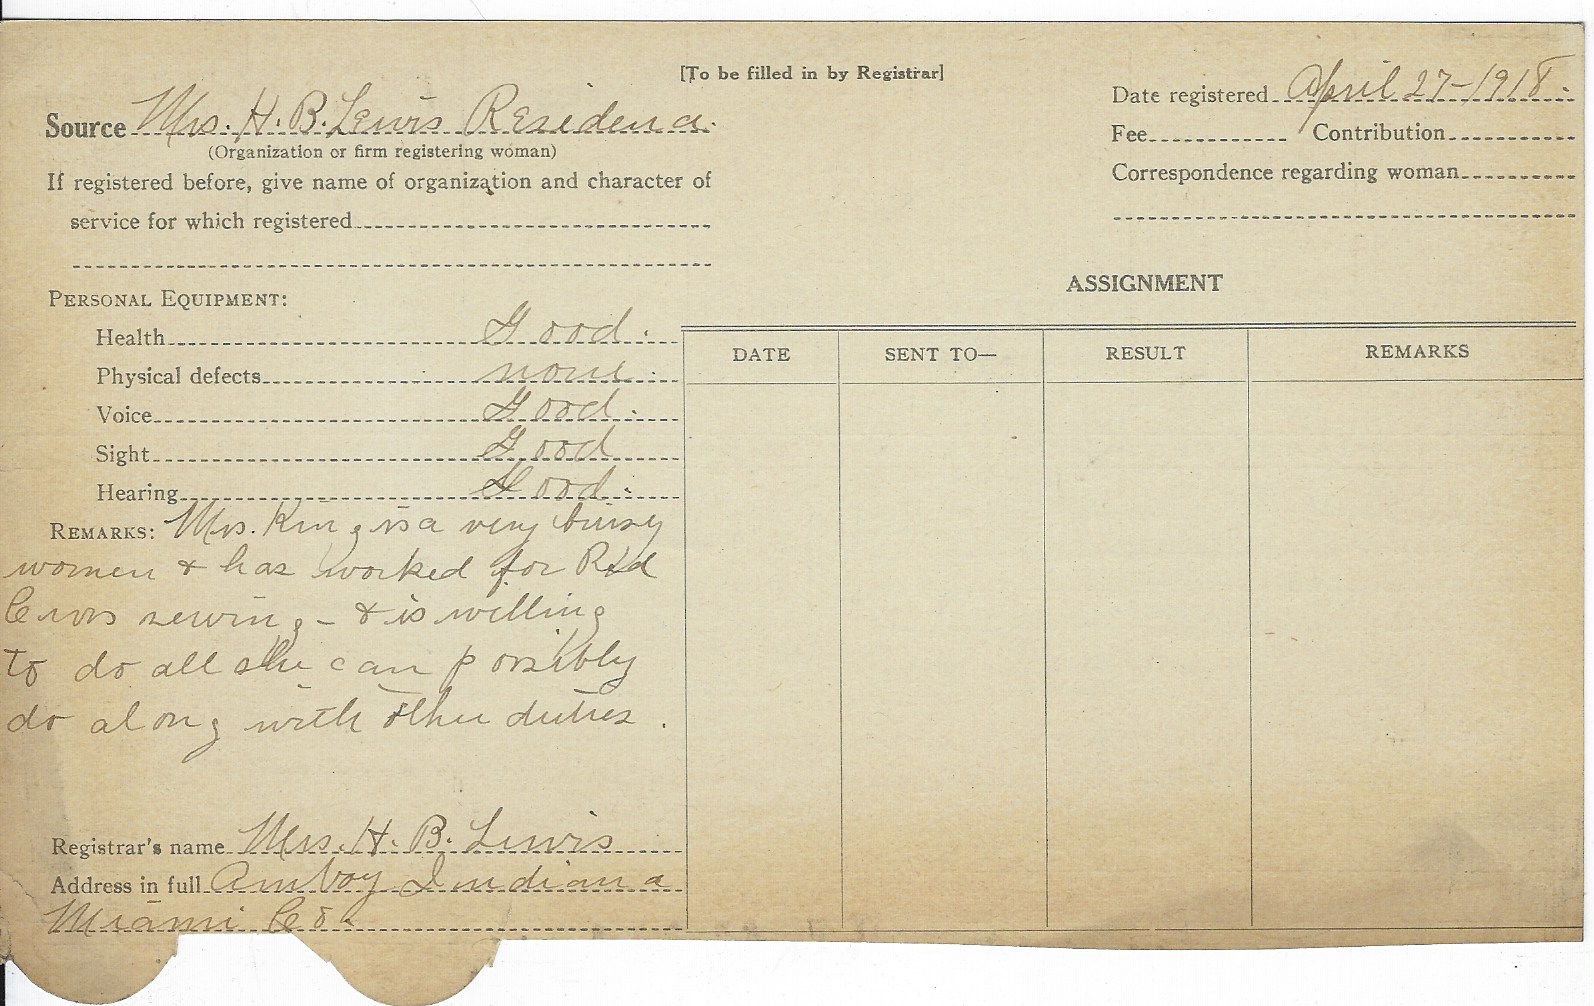 [To be filled in by Registrar]
Source Mrs. H. B. Lewis Residence.
(Organization or firm registering woman)
If registered before, give name of organization and character of
service for which registered
Date registered April 27-1918.
Fee Contribution
Correspondence regarding woman
PERSONAL EQUIPMENT:
Health Good.
Physical defects none.
Voice Good.
Sight Good
Hearing Good.
REMARKS: Mrs. King is a very busy
women & has worked for Red
Cross sewing - & is willing
to do all she can possibly
do along with other duties.
Registrar's name Mrs. H. B. Lewis
Address in full Amboy Indiana
Miami Co.
ASSIGNMENT
DATE SENT TO— RESULT REMARKS